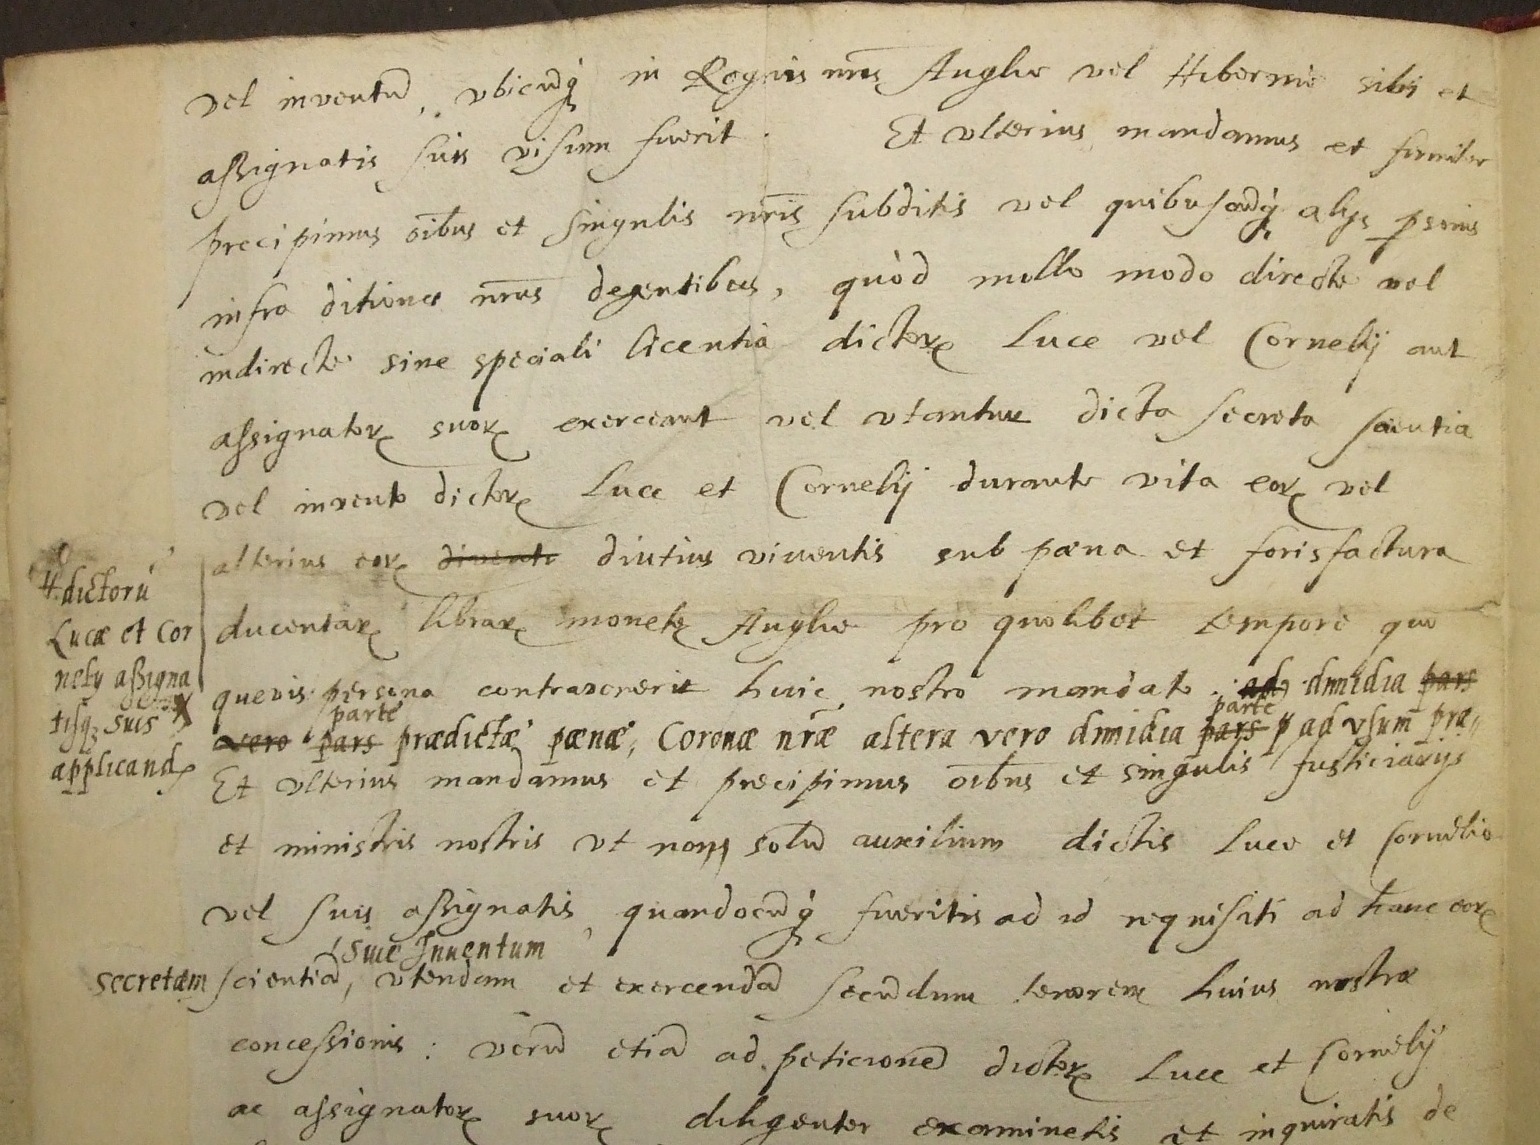 vel inventū, vbicūq́ in Regnis nr̄is Anglie vel Hibernie sibi et
assignatis suis visum fuerit. Et vlterius mandamus et firmiter
precipimus oībus et singulis nr̄is subditis vel quibuscūq́ alijs ꝑsonis
infra ditiones nr̄as degentibus, quòd nullo modo directe vel
indirecte sine speciali licentia dictoꝝ Luce vel Cornelij aut
assignatoꝝ suoꝝ exerceant vel vtantur dicta secreta scientia
vel invento dictoꝝ Luce et Cornelij durante vita eoꝝ vel
alterius eoꝝ diutius viventis sub pæna et forisfactura
ducentaꝝ libraꝝ monete Anglie pro quolibet tempore quo
quevis persona contravenerit huic nostro mandato. ad dimidia pars
parte parte
vero pars prædictæ pænæ, Coronæ nr̄æ altera vero dimidia pars ad vsum præ„
dictorū
Lucæ et Cor
nelij assigna
tisq; suis
applicand
Et vlterius mandamus et precipimus oībus et singulis Justiciarijs
et ministris nostris vt non solū auxilium dictis Luce et Cornelio
vel suis assignatis, quandocūq́ fueritis ad id requisiti ad hanc eoꝝ
sive Inventum
secretam scientiā, vtendam et exercendā secūdum tenorem huius nostræ
concessionis: verū etiā ad peticionē dictoꝝ Luce et Cornelij
ac assignatoꝝ suoꝝ diligenter examinetis et inquiratis de